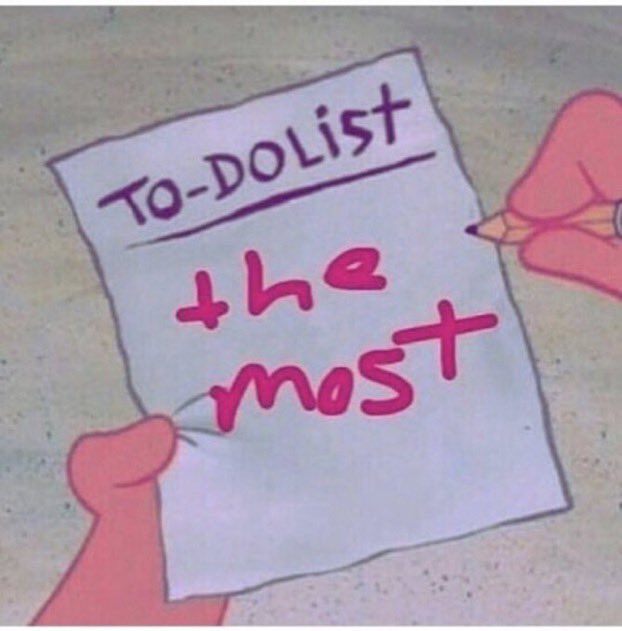 TO-DOLiST
the
most